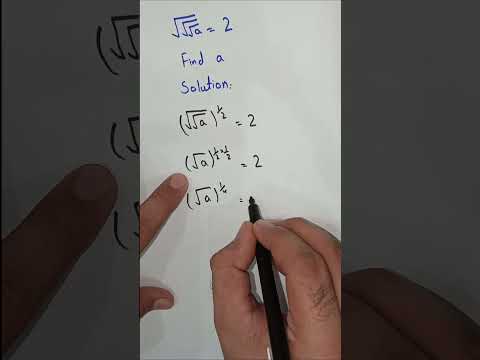 √√√a = 2
Find a
Solution:
(√√a)^1/2 = 2
(√a)^1/2×1/2 = 2
(√a)^1/4 =